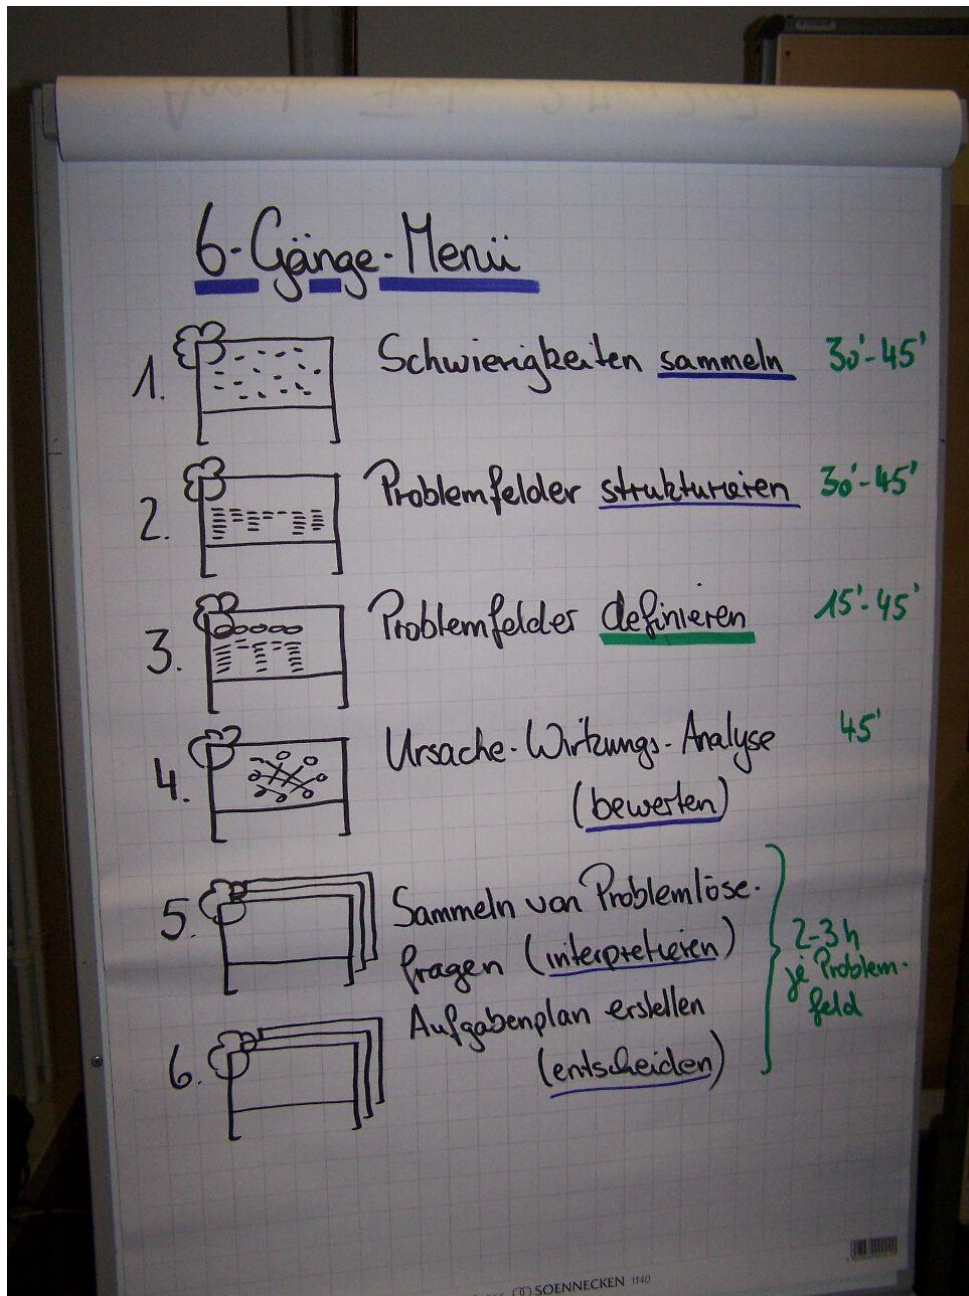 6-Gänge-Menü
1. Schwierigkeiten sammeln 30'-45'
2. Problemfelder strukturieren 30'-45'
3. Problemfelder definieren 15'-45'
4. Ursache-Wirkungs-Analyse 45'
(bewerten)
5. Sammeln von Problemlöse-
fragen (interpretieren)
6. Aufgabenplan erstellen
(entscheiden)
2-3h
je Problem-
feld
SOENNECKEN 1140